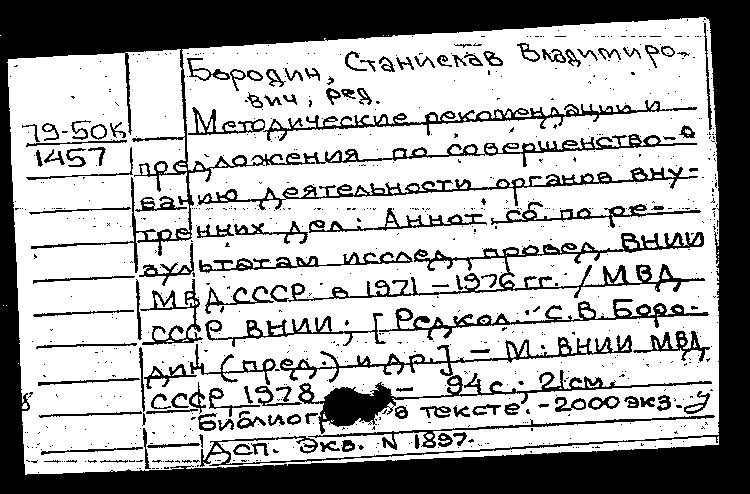 Бородин, Станислав Владимиро-
вич, ред.
79-50К
1457
Методические рекомендации и
предложения по совершенство-
ванию деятельности органов вну-
тренних дел: Аннот. сб. по ре-
зультатам исслед., провед. ВНИИ
МВД СССР в 1971-1976 гг. / МВД
СССР, ВНИИ; [Редкол.: С.В. Боро-
дин (пред.) и др.]. - М.: ВНИИ МВД
СССР, 1978 - 94 с.; 21 см.
Библиогр. в тексте. - 2000 экз.
Дсп. Экз. N 1897.